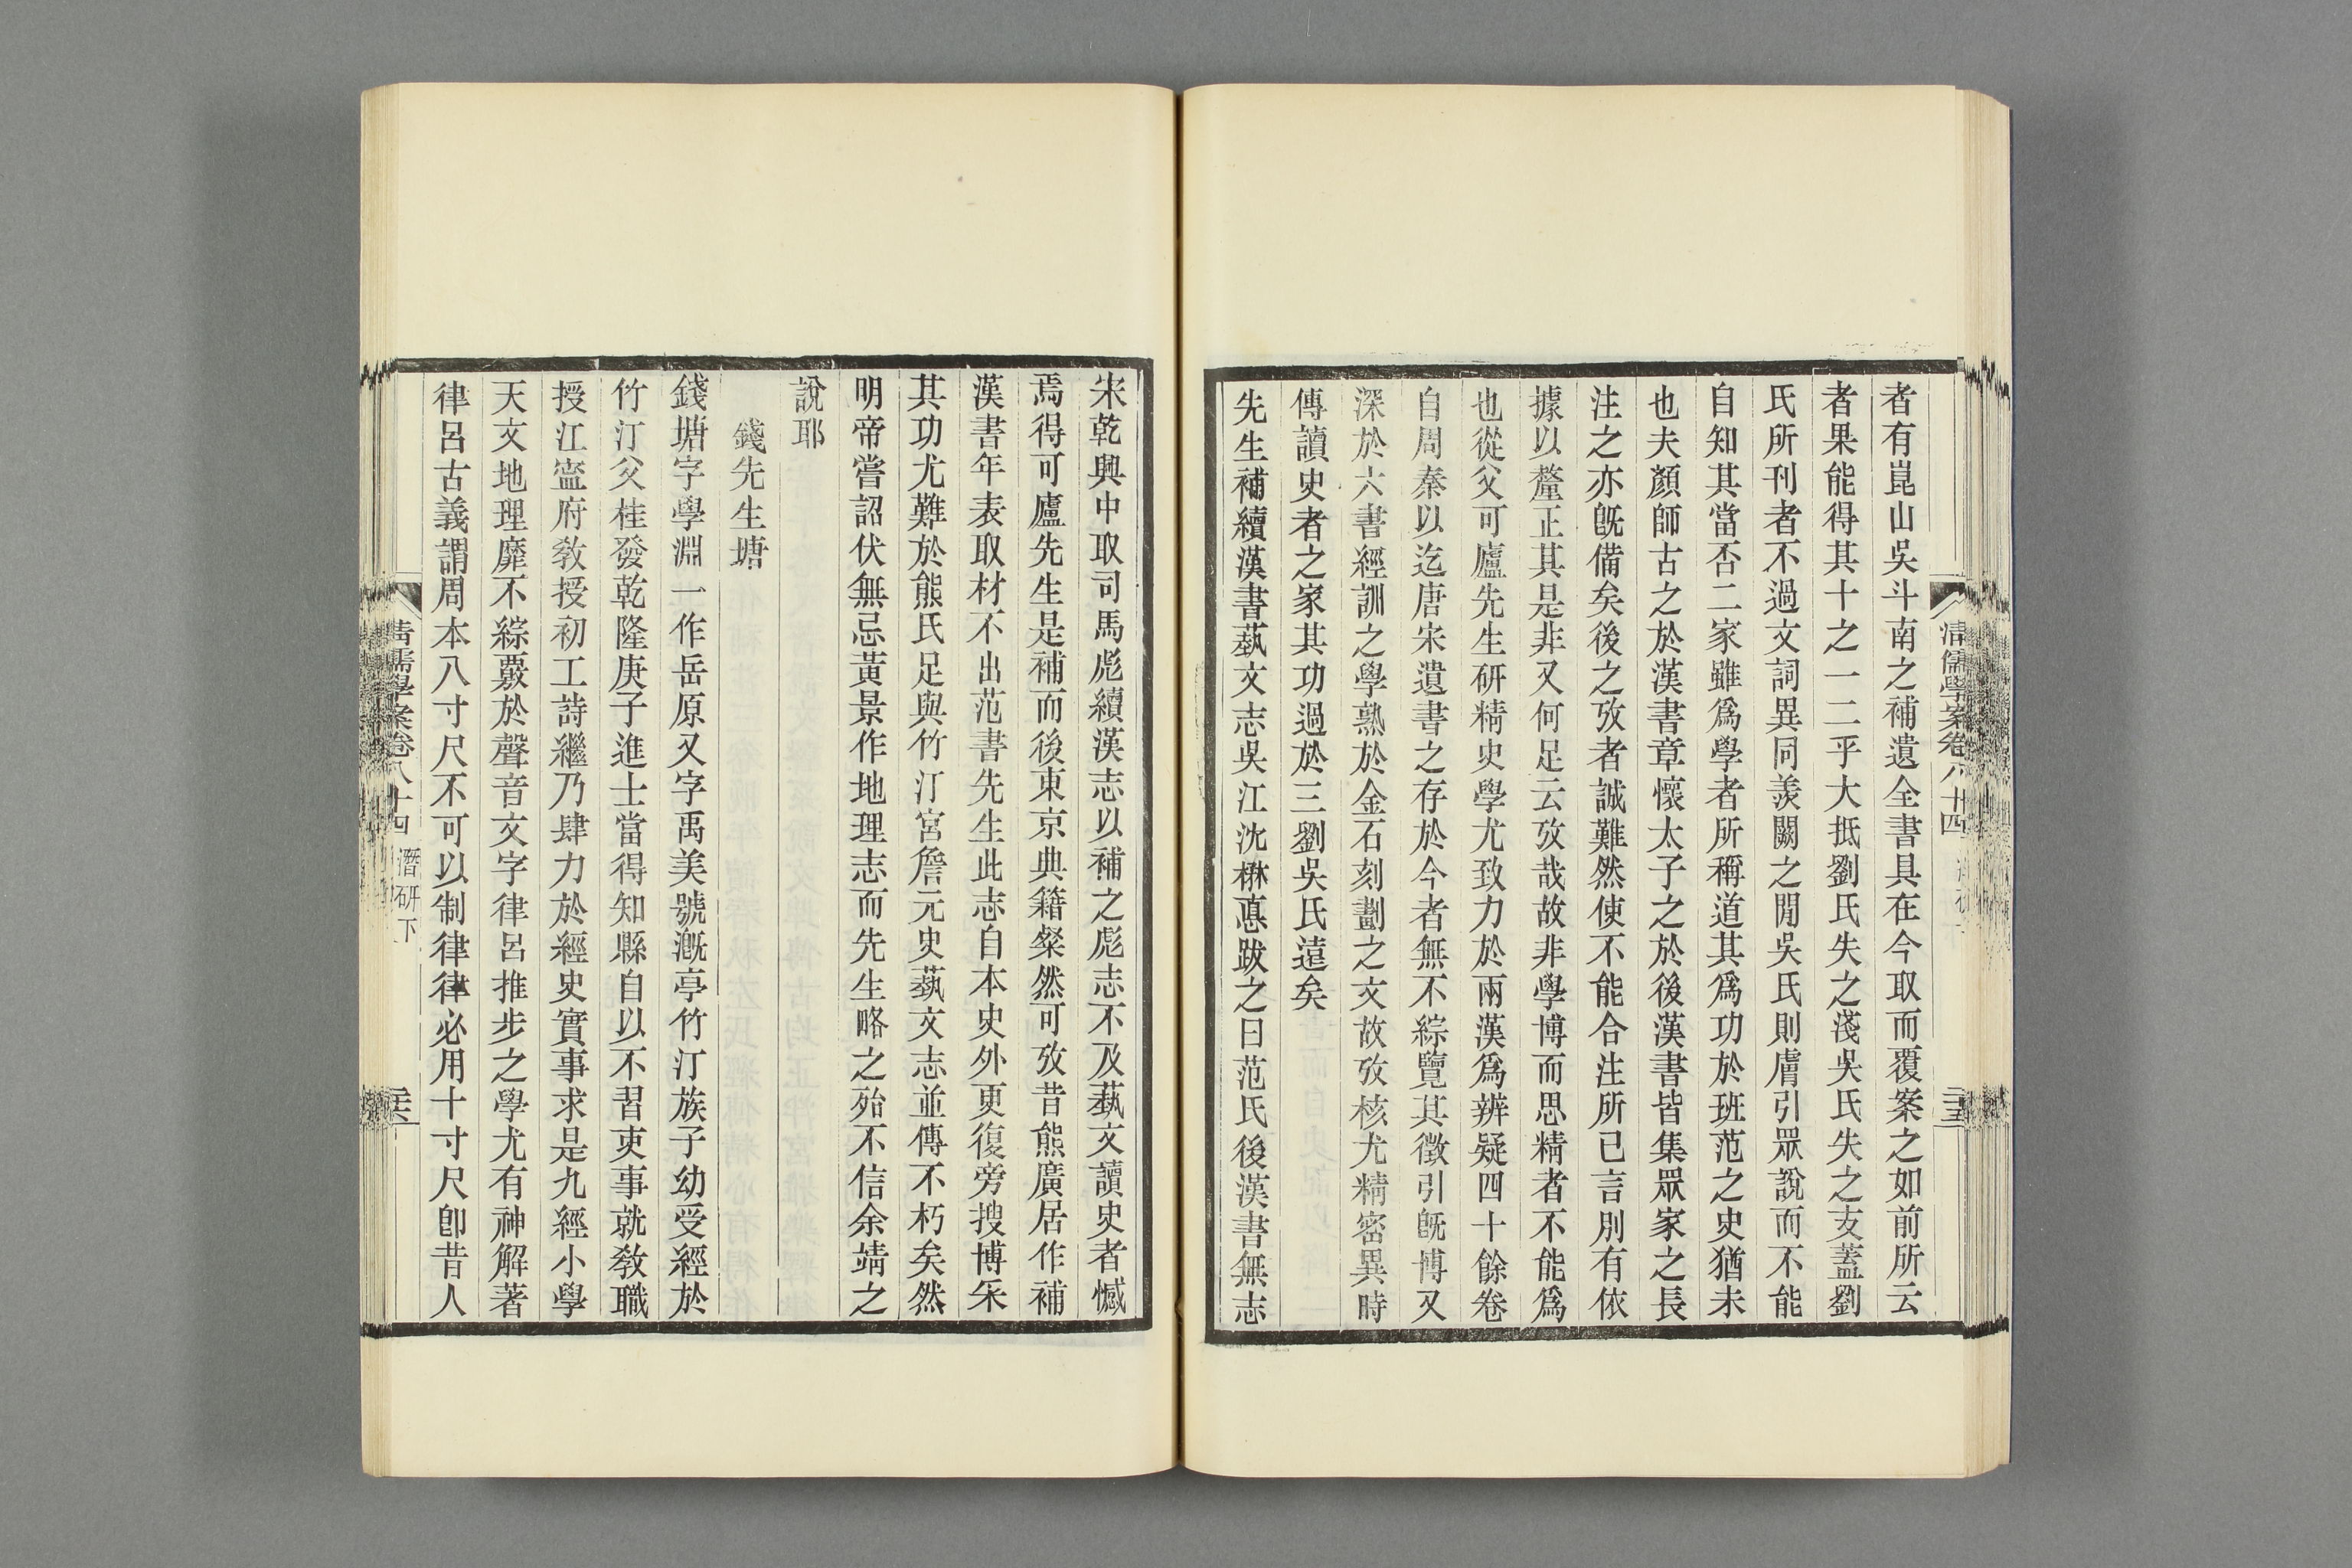 清儒學案卷八十四
者有崑山吳斗南之補遺全書具在今取而覆案之如前所云
者果能得其十之一二乎大抵劉氏失之淺吳氏失之支蓋劉
氏所刊者不過文詞異同羨闕之閒吳氏則膚引眾說而不能
自知其當否二家雖爲學者所稱道其爲功於班范之史猶未
也夫顏師古之於漢書章懷太子之於後漢書皆集眾家之長
注之亦旣備矣後之攷者誠難然使不能合注所已言別有依
據以釐正其是非又何足云攷哉故非學博而思精者不能爲
也從父可廬先生研精史學尤致力於兩漢爲辨疑四十餘卷
自周秦以迄唐宋遺書之存於今者無不綜覽其徵引旣博又
深於六書經訓之學熟於金石刻劃之文故攷核尤精密異時
傳讀史者之家其功過於三劉吳氏遠矣
先生補續漢書藝文志吳江沈楙悳跋之曰范氏後漢書無志
宋乾興中取司馬彪續漢志以補之彪志不及藝文讀史者憾
焉得可廬先生是補而後東京典籍粲然可攷昔熊廣居作補
漢書年表取材不出范書先生此志自本史外更復旁搜博采
其功尤難於熊氏足與竹汀宮詹元史藝文志並傳不朽矣然
明帝嘗詔伏無忌黃景作地理志而先生略之殆不信余靖之
說耶
錢先生塘
錢塘字學淵一作岳原又字禹美號漑亭竹汀族子幼受經於
竹汀父桂發乾隆庚子進士當得知縣自以不習吏事就教職
授江寍府敎授初工詩繼乃肆力於經史實事求是九經小學
天文地理靡不綜覈於聲音文字律呂推步之學尤有神解著
律呂古義謂周本八寸尺不可以制律律必用十寸尺卽昔人
清儒學案卷八十四 潛研下